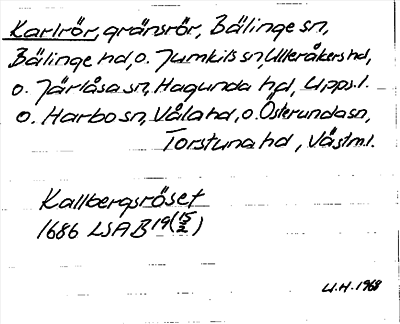 Karlrör, gränsrör, Bälinge sn,
Bälinge hd, o. Jumkils sn, Ulleråkers hd,
o. Järlåsa sn, Hagunda hd, Upps.l.
o. Harbo sn, Våla hd, o. Österunda sn,
Torstuna hd, Västm.l.
Kallbergsröset
1686 LSA B19(15/2)
U.H. 1968